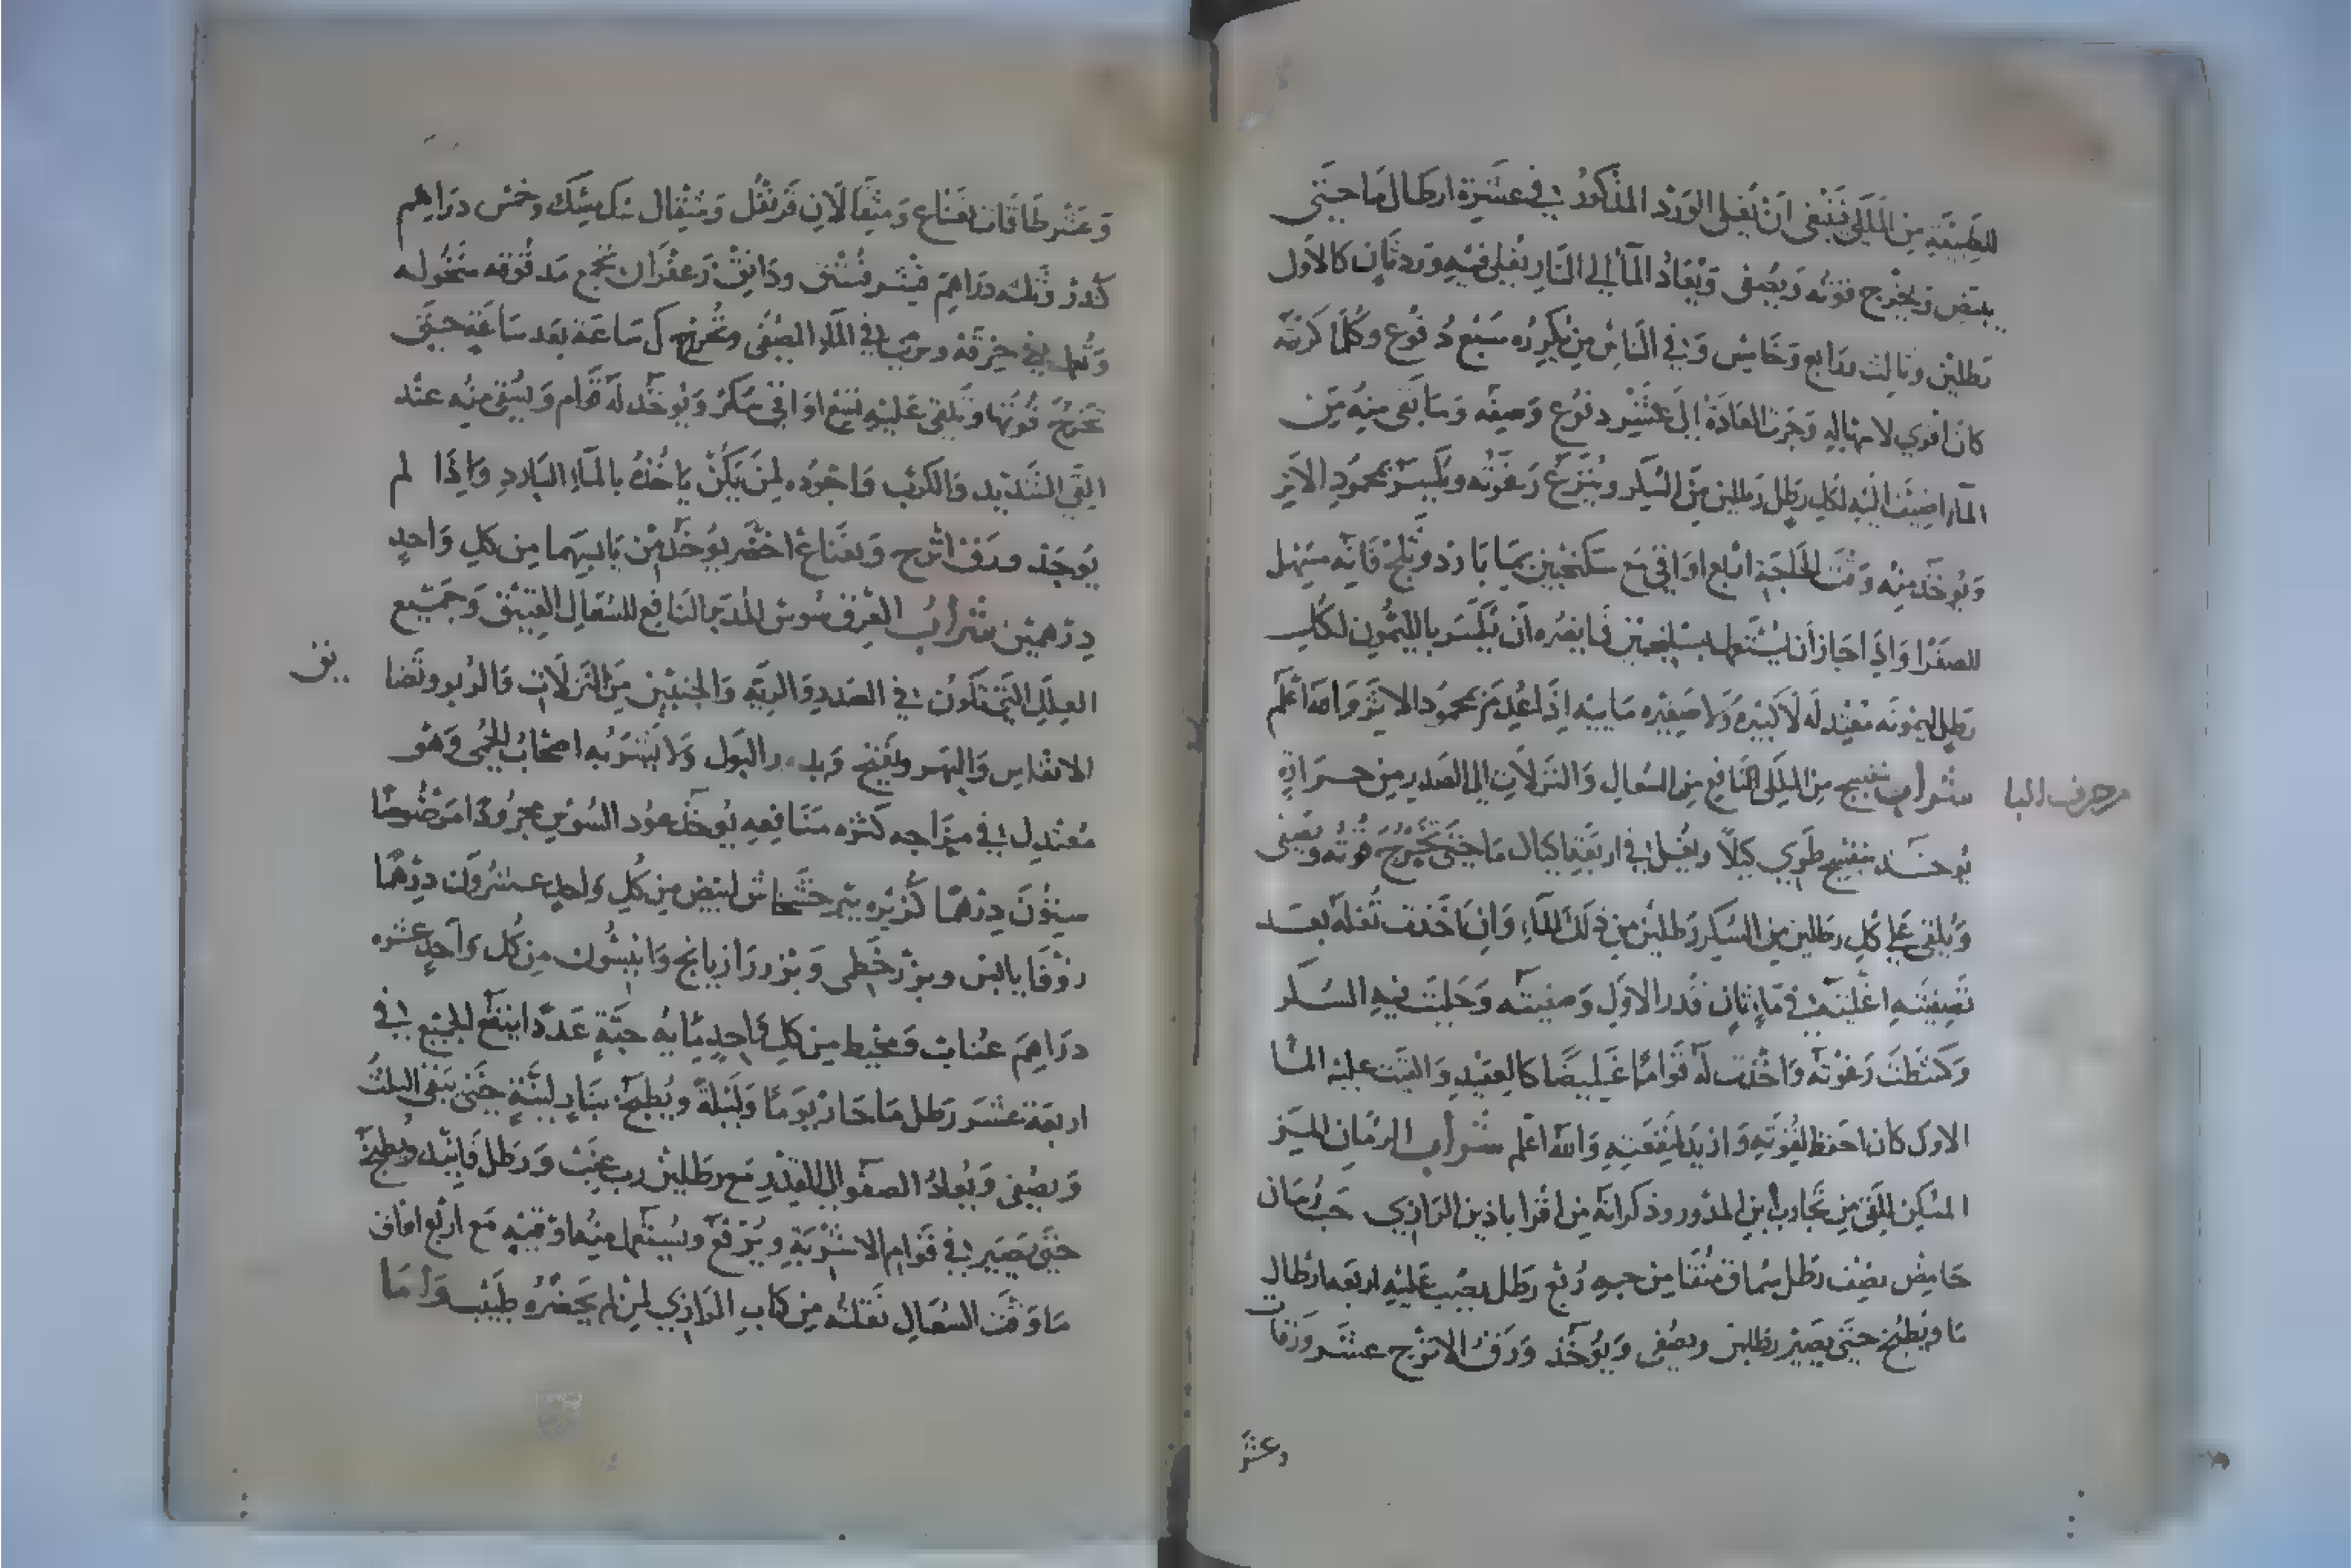 للطبيعة من الملكي فينبغي ان يغلى الورد المذكور في عشرة ارطال ما حتى
يبيض ويخرج قوته ويصفى ويعاد الما الى النار يغلى فيه ورد ثان كالاول
رطلين وثالث ورابع وخامس وفي الناس من يكرره سبع دفوع وكلما كررته
كان اقوى لاسهاله وجرت العادة الى عشر دفوع وصفه وما بقى منه من
الما اضيف اليه لكل رطل رطلين من السكر وينزع رغوته ويكسر بمحمود الاثر
ويوخذ منه وقت الحاجة اربع اواقي مع سكنجبين بما بارد وثلج فانه مسهل
للصفرا واذا جاز ان يستعمل بسكنجبين فما يضره ان يكسر بالليمون لكل
رطل ليمونه معتدله لا كبيره ولا صغيره مابيه اذا عدم محمود الاثر والله اعلم
شراب بنفسج من الملكي النافع من السعال والنزلات الى الصدر من حرارة
من حرف البا
يوخذ بنفسج طري كيلا ويغلى في اربعة اكيال ما حتى تخرج قوته ويصفى
ويلقى على كل رطلين من السكر رطلين من ذلك الماء وان اخذت ثفله بعد
تصفيته اغليته في ماء ثان قدر الاول وصفيته وحليت فيه السكر
وكشطت رغوته واخذت له قواما غليضا كالعقيد والقيت عليه الما
الاول كان احفظ لقوته وازيد لمنفعته والله اعلم شراب الرمان المز
المسكن للقي من تجارب ابن المدور وذكر انه من اقراباذين الرازي حب رمان
حامض نصف رطل سماق منقا من حبه ربع رطل يصب عليه اربعة ارطال
ما ويطبخ حتى يصير رطلين ويصفى ويوخذ ورق الاترج عشر ورقات
وعشر
وعشر طاقات نعناع ومثقالان قرنفل ومثقال سك مسك وخمس دراهم
كندر وثلثه دراهم قشر فستق ودانق زعفران تجمع مدقوقه منخوله
وتعمل في خرقه في الماء المصفى وتخرج كل ساعة بعد ساعة حتى
تخرج قوتها ويلقى عليه تسع اواقي سكر ويوخذ له قوام ويسقى منه عند
القي الشديد والكرب واجوده لمن يكن ياخذه بالماء البارد واذا لم
يوجد ورق اترج ونعناع اخضر يوخذ من يابسهما من كل واحد
درهمين شراب العرق سوس النافع للسعال العتيق وجميع
العلل التي تكون في الصدر والرية والجنبين من النزلات والربو
الانفاس والبهر والبول ولا يشربه اصحاب الحمى وهو
معتدل في مزاجه كثره منافعه يوخذ عود السوس مجرودا مرضوضا
ستون درهما كزبره بير خشخاش ابيض من كل واحد عشرون درهما
زوفا يابس وبزر خطمي وبزر رازيانج وانيسون من كل واحد عشره
دراهم عناب ومخيط من كل واحد مايه حبة عددا ينقع الجميع في
اربعة عشر رطل ما حار يوما وليلة ويطبخ بنار لينة حتى يبقى الثلث
ويصفى ويعاد الصفو الى القدر مع رطلين رب عنب ورطل فانيد ويطبخ
حتى يصير في قوام الاشربة ويرفع ويستعمل منه اوقيه مع اربع اواق
ما وقت السعال نقلته من كتاب الرازي لمن لم يحضره طبيب واما